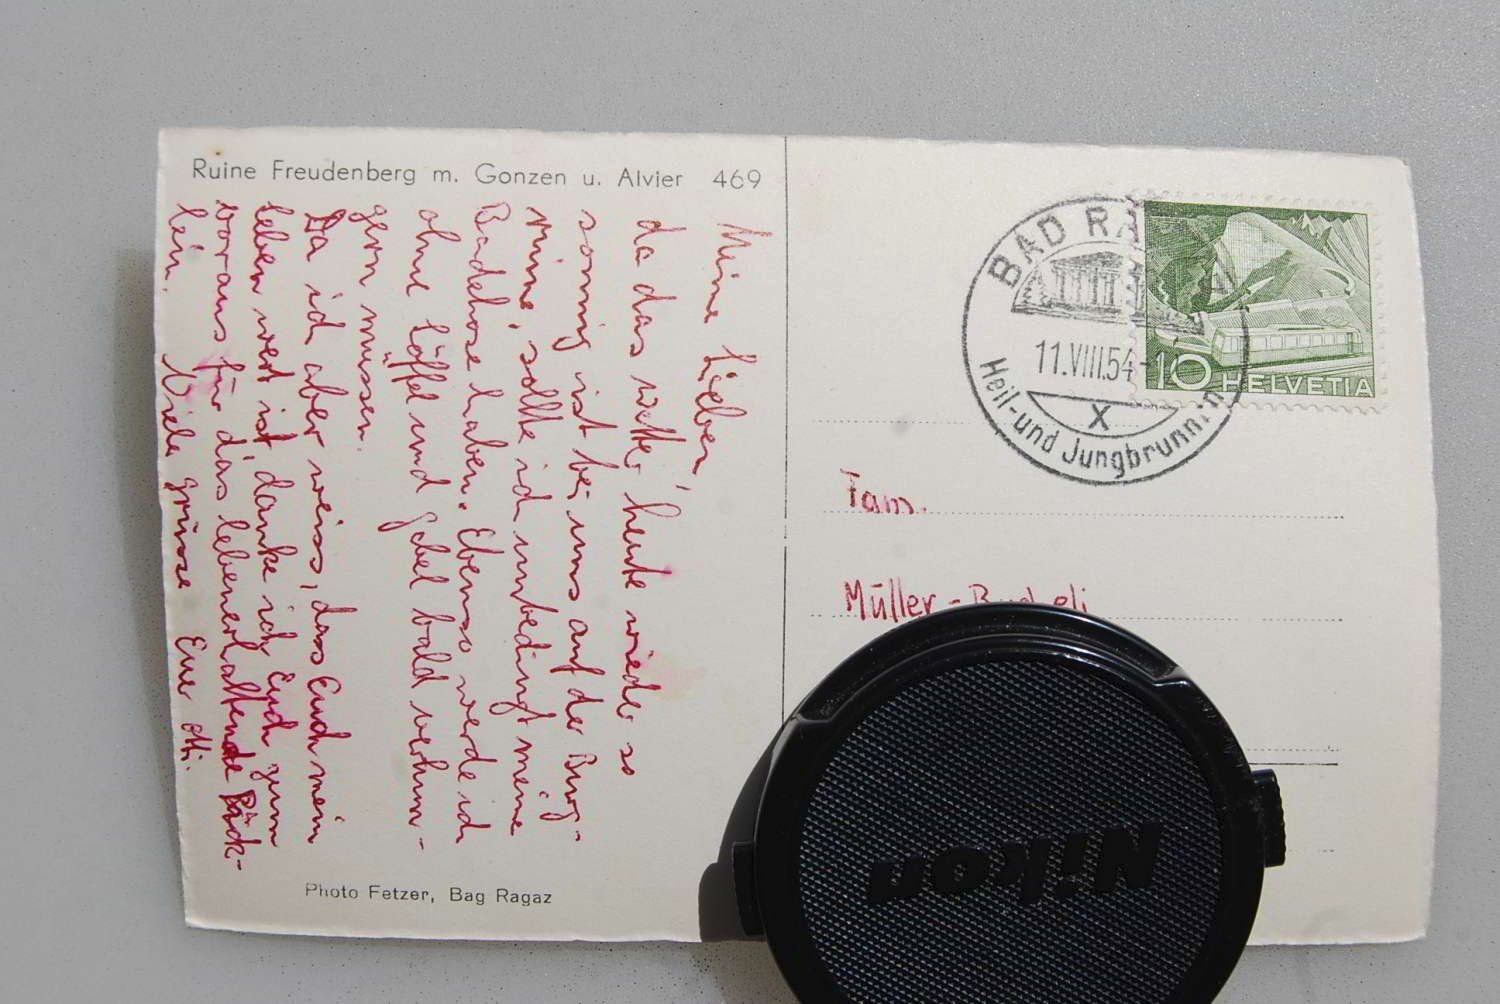 Ruine Freudenberg m. Gonzen u. Alvier 469
Meine Lieben,
da das wetter heute wieder so
sonnig ist bei uns auf der Burg-
ruine, sollte ich unbedingt meine
Badehose haben. Ebenso werde ich
ohne Löffel und gabel bald verhun-
gern müssen.
Da ich aber weiss, dass Euch mein
leben wert ist, danke ich Euch zum
voraus für das lebenerhaltende Päck-
lein. Viele grüsse Euer
Photo Fetzer, Bag Ragaz
BAD RA
11.VIII.54-10
X
Heil-und Jungbrunnen
HELVETIA
Fam.
Müller-
Nikon